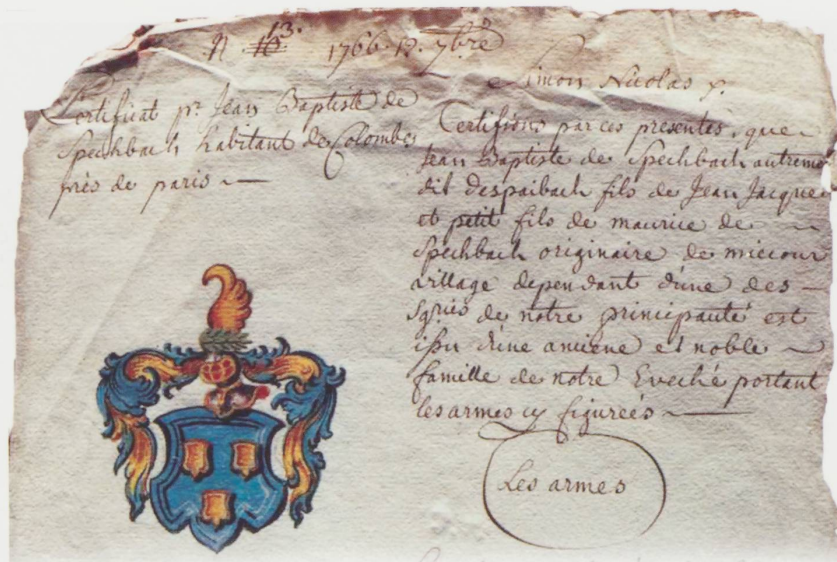 N. 10 13. 1766. 12. 7bre
Certificat pr. Jean Baptiste de
Spechbach habitant de Colombes
près de paris —
Simon Nicolas p.
Certifions par ces presentes, que
Jean Baptiste de Spechbach autreme
dit despaibach fils de Jean Jacque
et petit fils de maurice de —
Spechbach originaire de miecour
village dependant d'une des —
sgries de notre principauté est
issu d'une anciene et noble —
famille de notre Eveché portant
les armes cy figureés —
Les armes